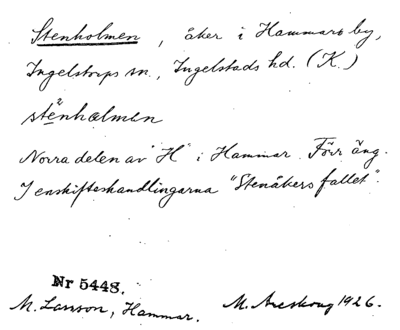 Stenholmen, åker i Hammars by,
Ingelstorps sn., Ingelstads hd. (K.)
stẹ̈nhælmen
Norra delen av "H" i Hammar. Förr äng.
I enskifteshandlingarna "Stenåkers fallet".
Nr 5448.
M. Larsson, Hammar. M. Areskoug 1926.